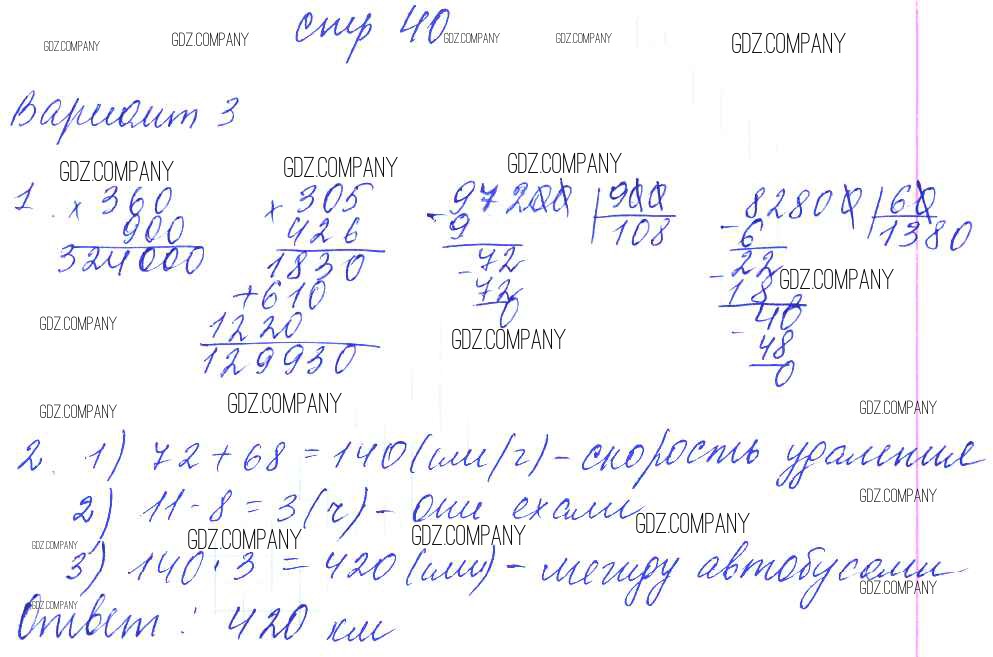 стр 40
GDZ.COMPANY GDZ.COMPANY GDZ.COMPANY GDZ.COMPANY GDZ.COMPANY
Вариант 3
GDZ.COMPANY GDZ.COMPANY GDZ.COMPANY
1. x 360 x 305 - 97200 | 900 - 82800 | 60
900 426 9 108 6 1380
324000 1830 - 72 - 22 GDZ.COMPANY
+610 72 18
GDZ.COMPANY 1220 0 - 40
129930 GDZ.COMPANY 48
0
GDZ.COMPANY GDZ.COMPANY GDZ.COMPANY
2. 1) 72 + 68 = 140 (км/г) - скорость удаления
2) 11 - 8 = 3 (ч) - они ехали
GDZ.COMPANY
GDZ.COMPANY GDZ.COMPANY GDZ.COMPANY GDZ.COMPANY
3) 140 · 3 = 420 (км) - между автобусами
GDZ.COMPANY GDZ.COMPANY
Ответ : 420 км